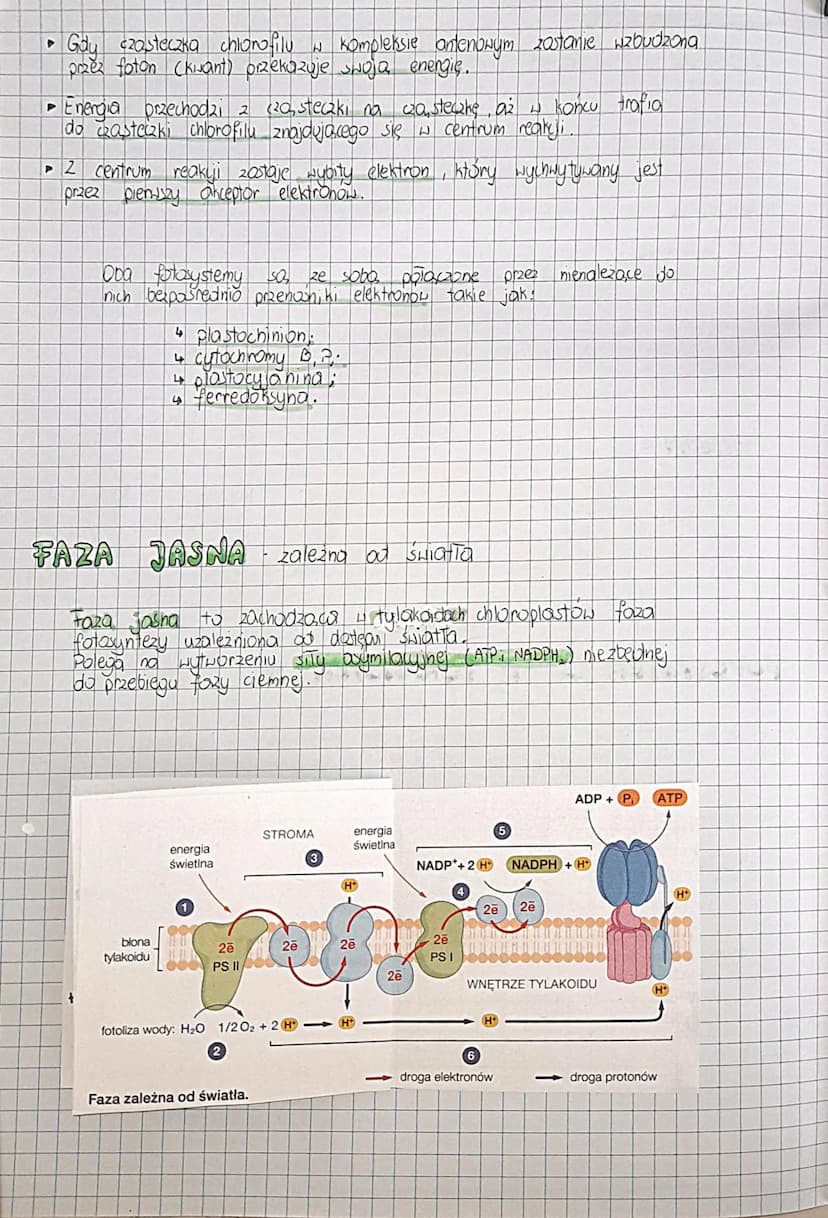 ▸ Gdy cząsteczka chlorofilu w kompleksie antenowym zostanie wzbudzona
przez foton (kwant) przekazuje swoją energię.
▸ Energia przechodzi z cząsteczki na cząsteczkę, aż w końcu trafia
do cząsteczki chlorofilu znajdującego się w centrum reakcji.
▸ Z centrum reakcji zostaje wybity elektron, który wychwytywany jest
przez pierwszy akceptor elektronów.
Oba fotosystemy są ze sobą połączone przez nienależące do
nich bezpośrednio przenośniki elektronów takie jak:
↳ plastochinion;
↳ cytochromy
↳ plastocyjanina;
↳ ferredoksyna.
FAZA JASNA - zależna od światła
Faza jasna to zachodząca w tylakoidach chloroplastów faza
fotosyntezy uzależniona od światła.
Polega na wytworzeniu siły asymilacyjnej (ATP i NADPH₂) niezbędnej
do przebiegu fazy ciemnej.
ADP + Pi ATP
STROMA
energia świetlna
5
energia świetlna
3
NADP⁺ + 2 H⁺ NADPH + H⁺
H⁺
4
H⁺
1
2ē 2ē
błona tylakoidu
2ē 2ē 2ē 2ē
PS II
PS I
2ē
WNĘTRZE TYLAKOIDU
H⁺
fotoliza wody: H₂O 1/2 O₂ + 2 H⁺ H⁺ H⁺
2
6
droga elektronów droga protonów
Faza zależna od światła.